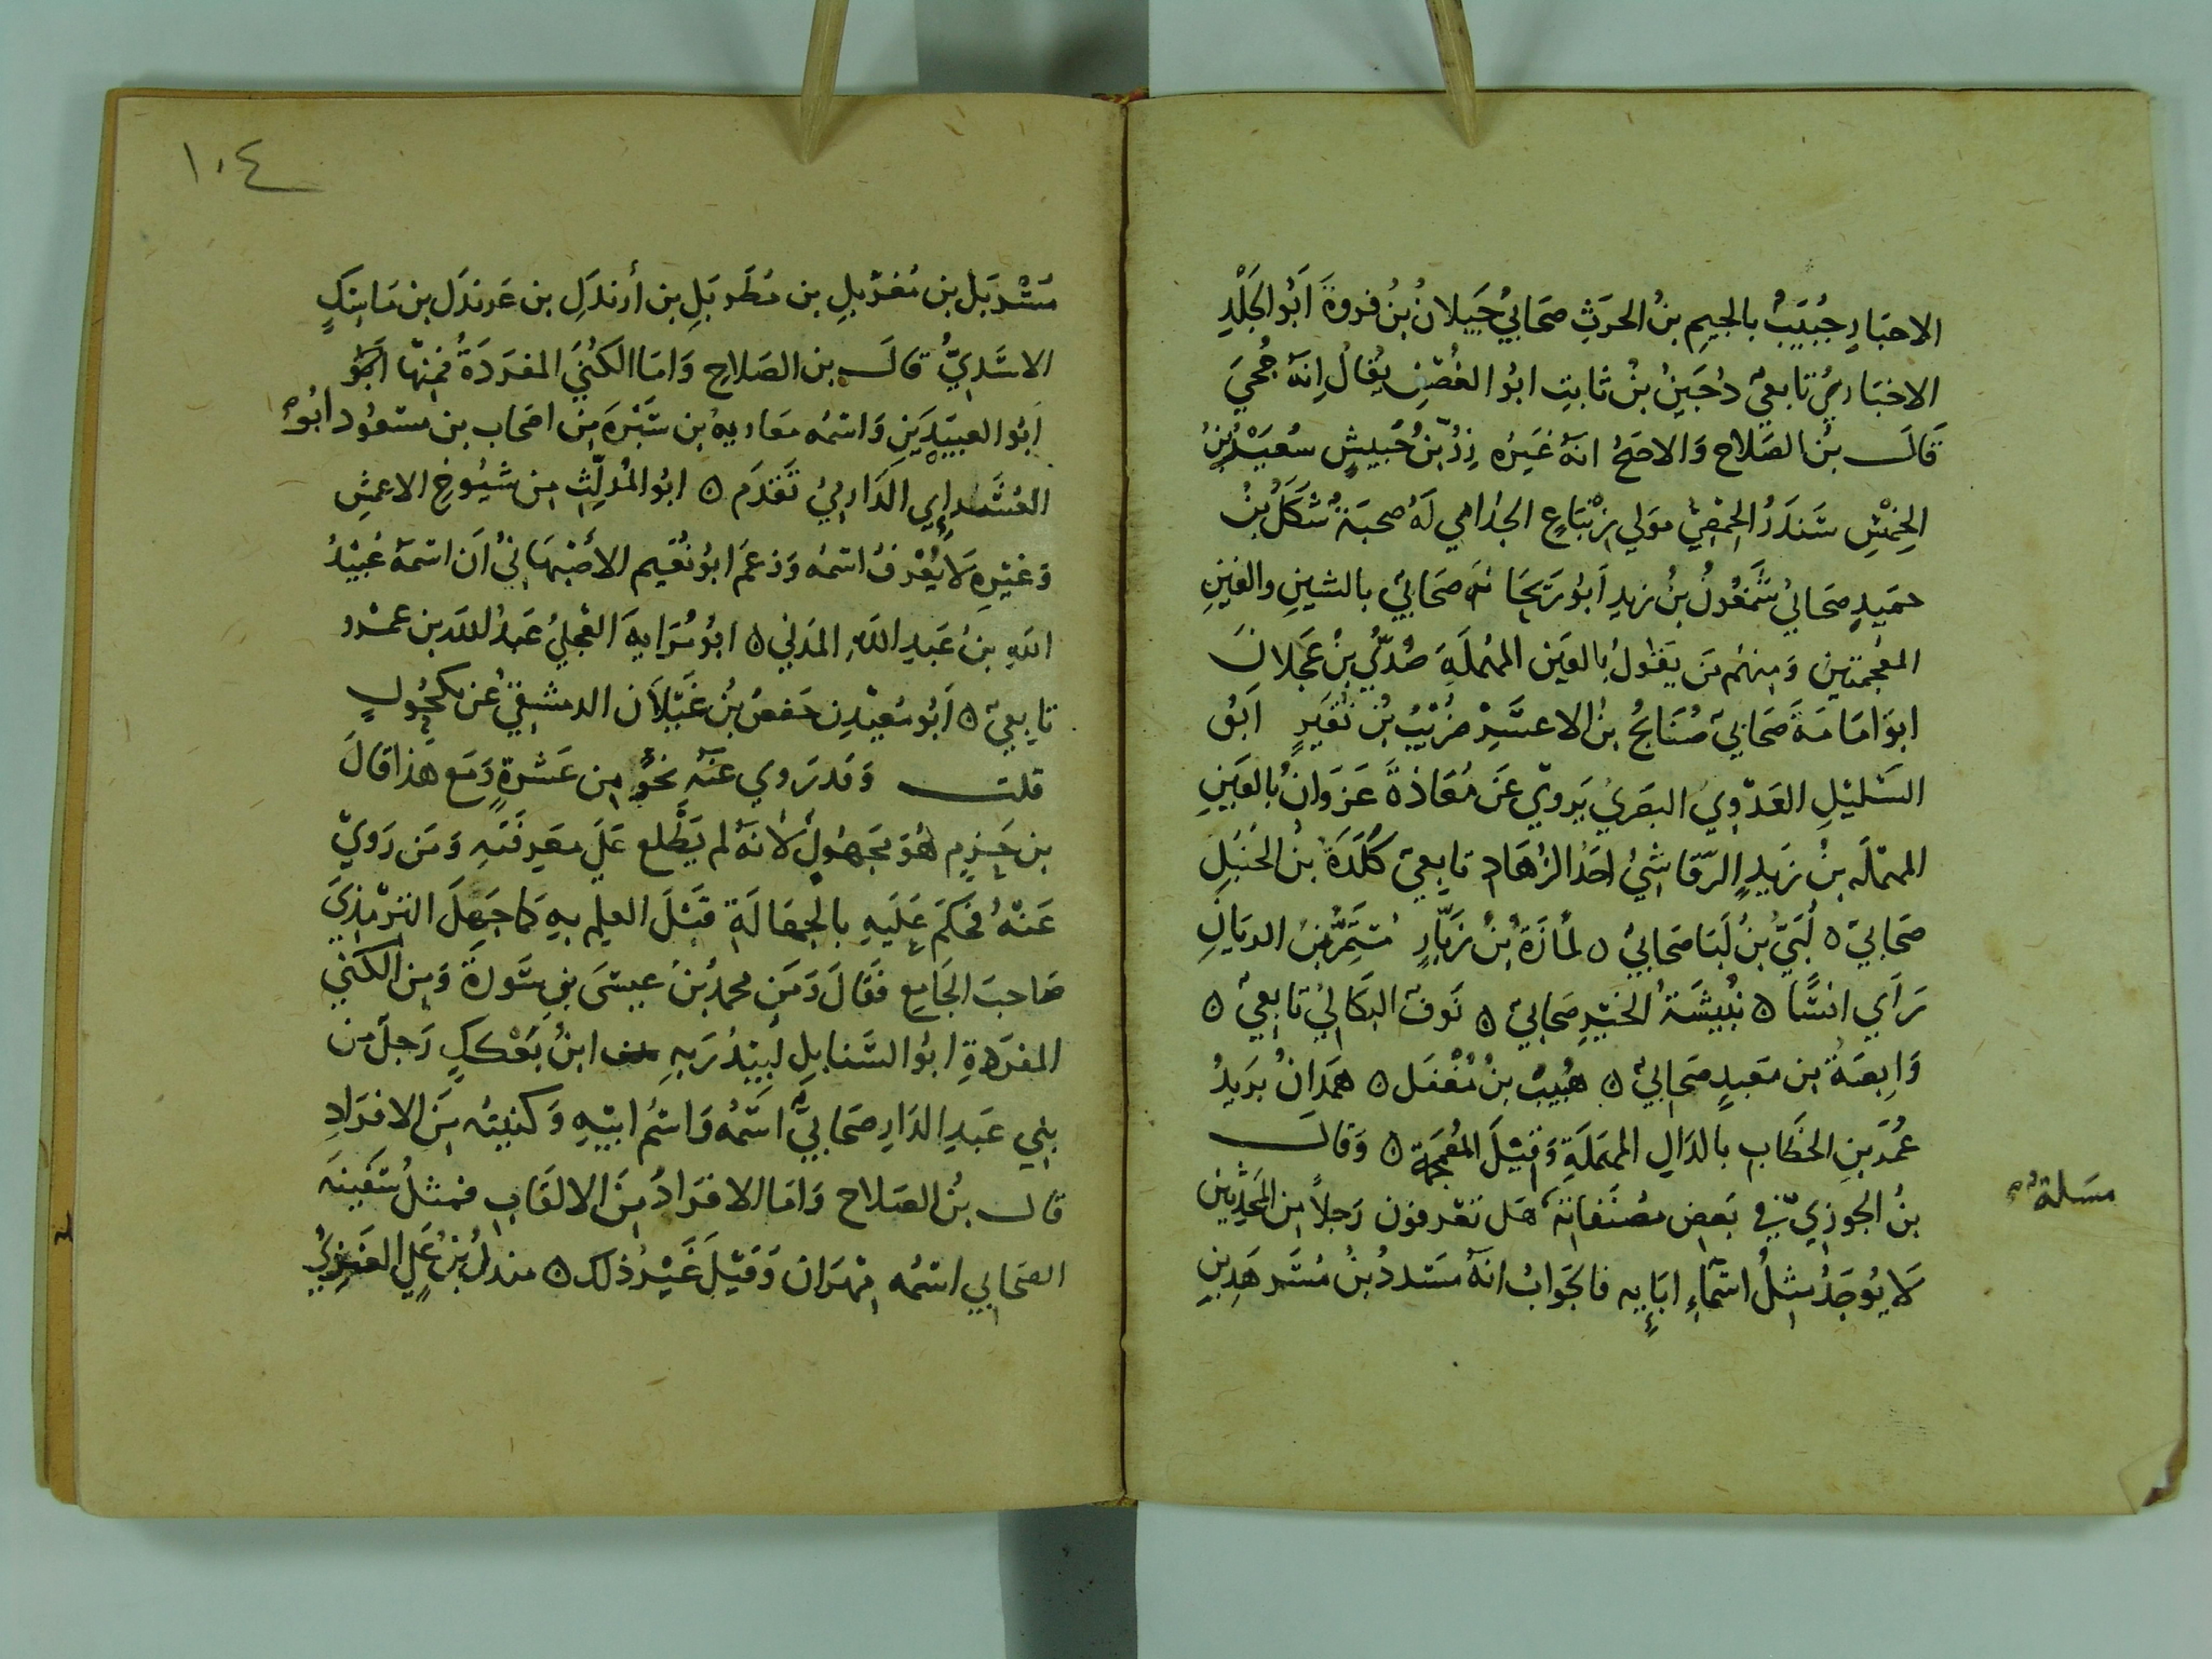 الاحبار جُبَيبُ بالجيم بنُ الحرث صحابي جَيلانُ بنُ فروة ابو الجَلْدِ
الاخباري تابعي دُجَينُ بنُ ثابت ابو الغُصْن يُقالُ انه جُحي
قال بنُ الصلاح والاصح انه غيره زرُّ بنُ حُبيشٍ سُعَيْرُ بنُ
الخِمْسِ سَندَرُ الخصي مولي زنباع الجذامي له صحبة شَكَلُ بنُ
حميدٍ صحابي شمغون بنُ زيد ابو ريحانه صحابي بالشين والغين
المعجمتين ومنهم من يقول بالعين المهملة صُدَيُّ بنُ عجلان
ابو امامة صحابي صُنَابحُ بنُ الاعسر ضُرَيْبُ بنُ نُقَير ابو
السَليلِ العدوي البصري يروي عن مُعَاذة عزوانُ بالعين
المهمله بنُ زيدٍ الرقاشي احد الزهاد تابعي كَلَدَة بنُ الحنبل
صحابي ه لُبَيُّ بنُ لَبَا صحابي ه لُمازَة بنُ زبّارٍ مُستَمِرُّ بن الريان
راي انسًا ه نُبيشة الخير صحابي ه نوف البكالي تابعي ه
وابصة بن معبدٍ صحابي ه هُبيب بنُ مُغْفل ه همدانُ بريدُ
عُمَر بن الخطاب بالدال المهملة وقيل المعجمة ه وقال
بنُ الجوزي في بعض مصنفاته هل تعرفون رجلاً من المحدثين
لا يُوجَدُ مثلُ اسماءِ ابايه فالجواب انه مسدد بنُ مسرهد بن
مسلة
١٠٤
مسْربَل بن مُغربلِ بن مُطَربَلِ بن أرندَلِ بن عرندَل بن ماسكٍ
الاسَديُّ قال بن الصلاح واما الكُني المفردة فمنها ابو
ابو العبيدين واسمه معاويه بن سَبْرة من اصحاب بن مسعود ابو
العُشَراءِ الدارمي تقدم ه ابو المُدلِّث من شيوخ الاعمش
وغيره لا يُعْرفُ اسمُه وزعم ابو نُعَيم الأصبهاني ان اسمه عُبيْدُ
الله بنُ عبد الله المدني ه ابو مُرَايه العجلي عبدُ الله بن عمرو
تابعي ه ابو مُعيْدٍ حفصُ بنُ غيلان الدمشقي عن مكحول
قلت وقد روي عنه نحو من عشرةٍ ومع هذا قال
بن حزم هو مجهول لانه لم يطّلع علي معرفته ومن رَوي
عنهُ فحكم عليه بالجهالة قبْل العلم به كما جهل الترمذي
صاحب الجامع فقال ومن محمد بنُ عيسى بن سَورةَ ومن الكني
المفردةِ ابو السنابل لَبيدُ رَبهِ ابن بَعْككٍ رَجل من
بني عبد الدار صحابي اسمُه واسم ابيه وكنيته من الافراد
قال بنُ الصلاح واما الافرادُ من الالقاب فمثلُ سَفينه
الصحابي اسمُه مهران وقيل غيرُ ذلك ه مندلُ بنُ علي العنزي